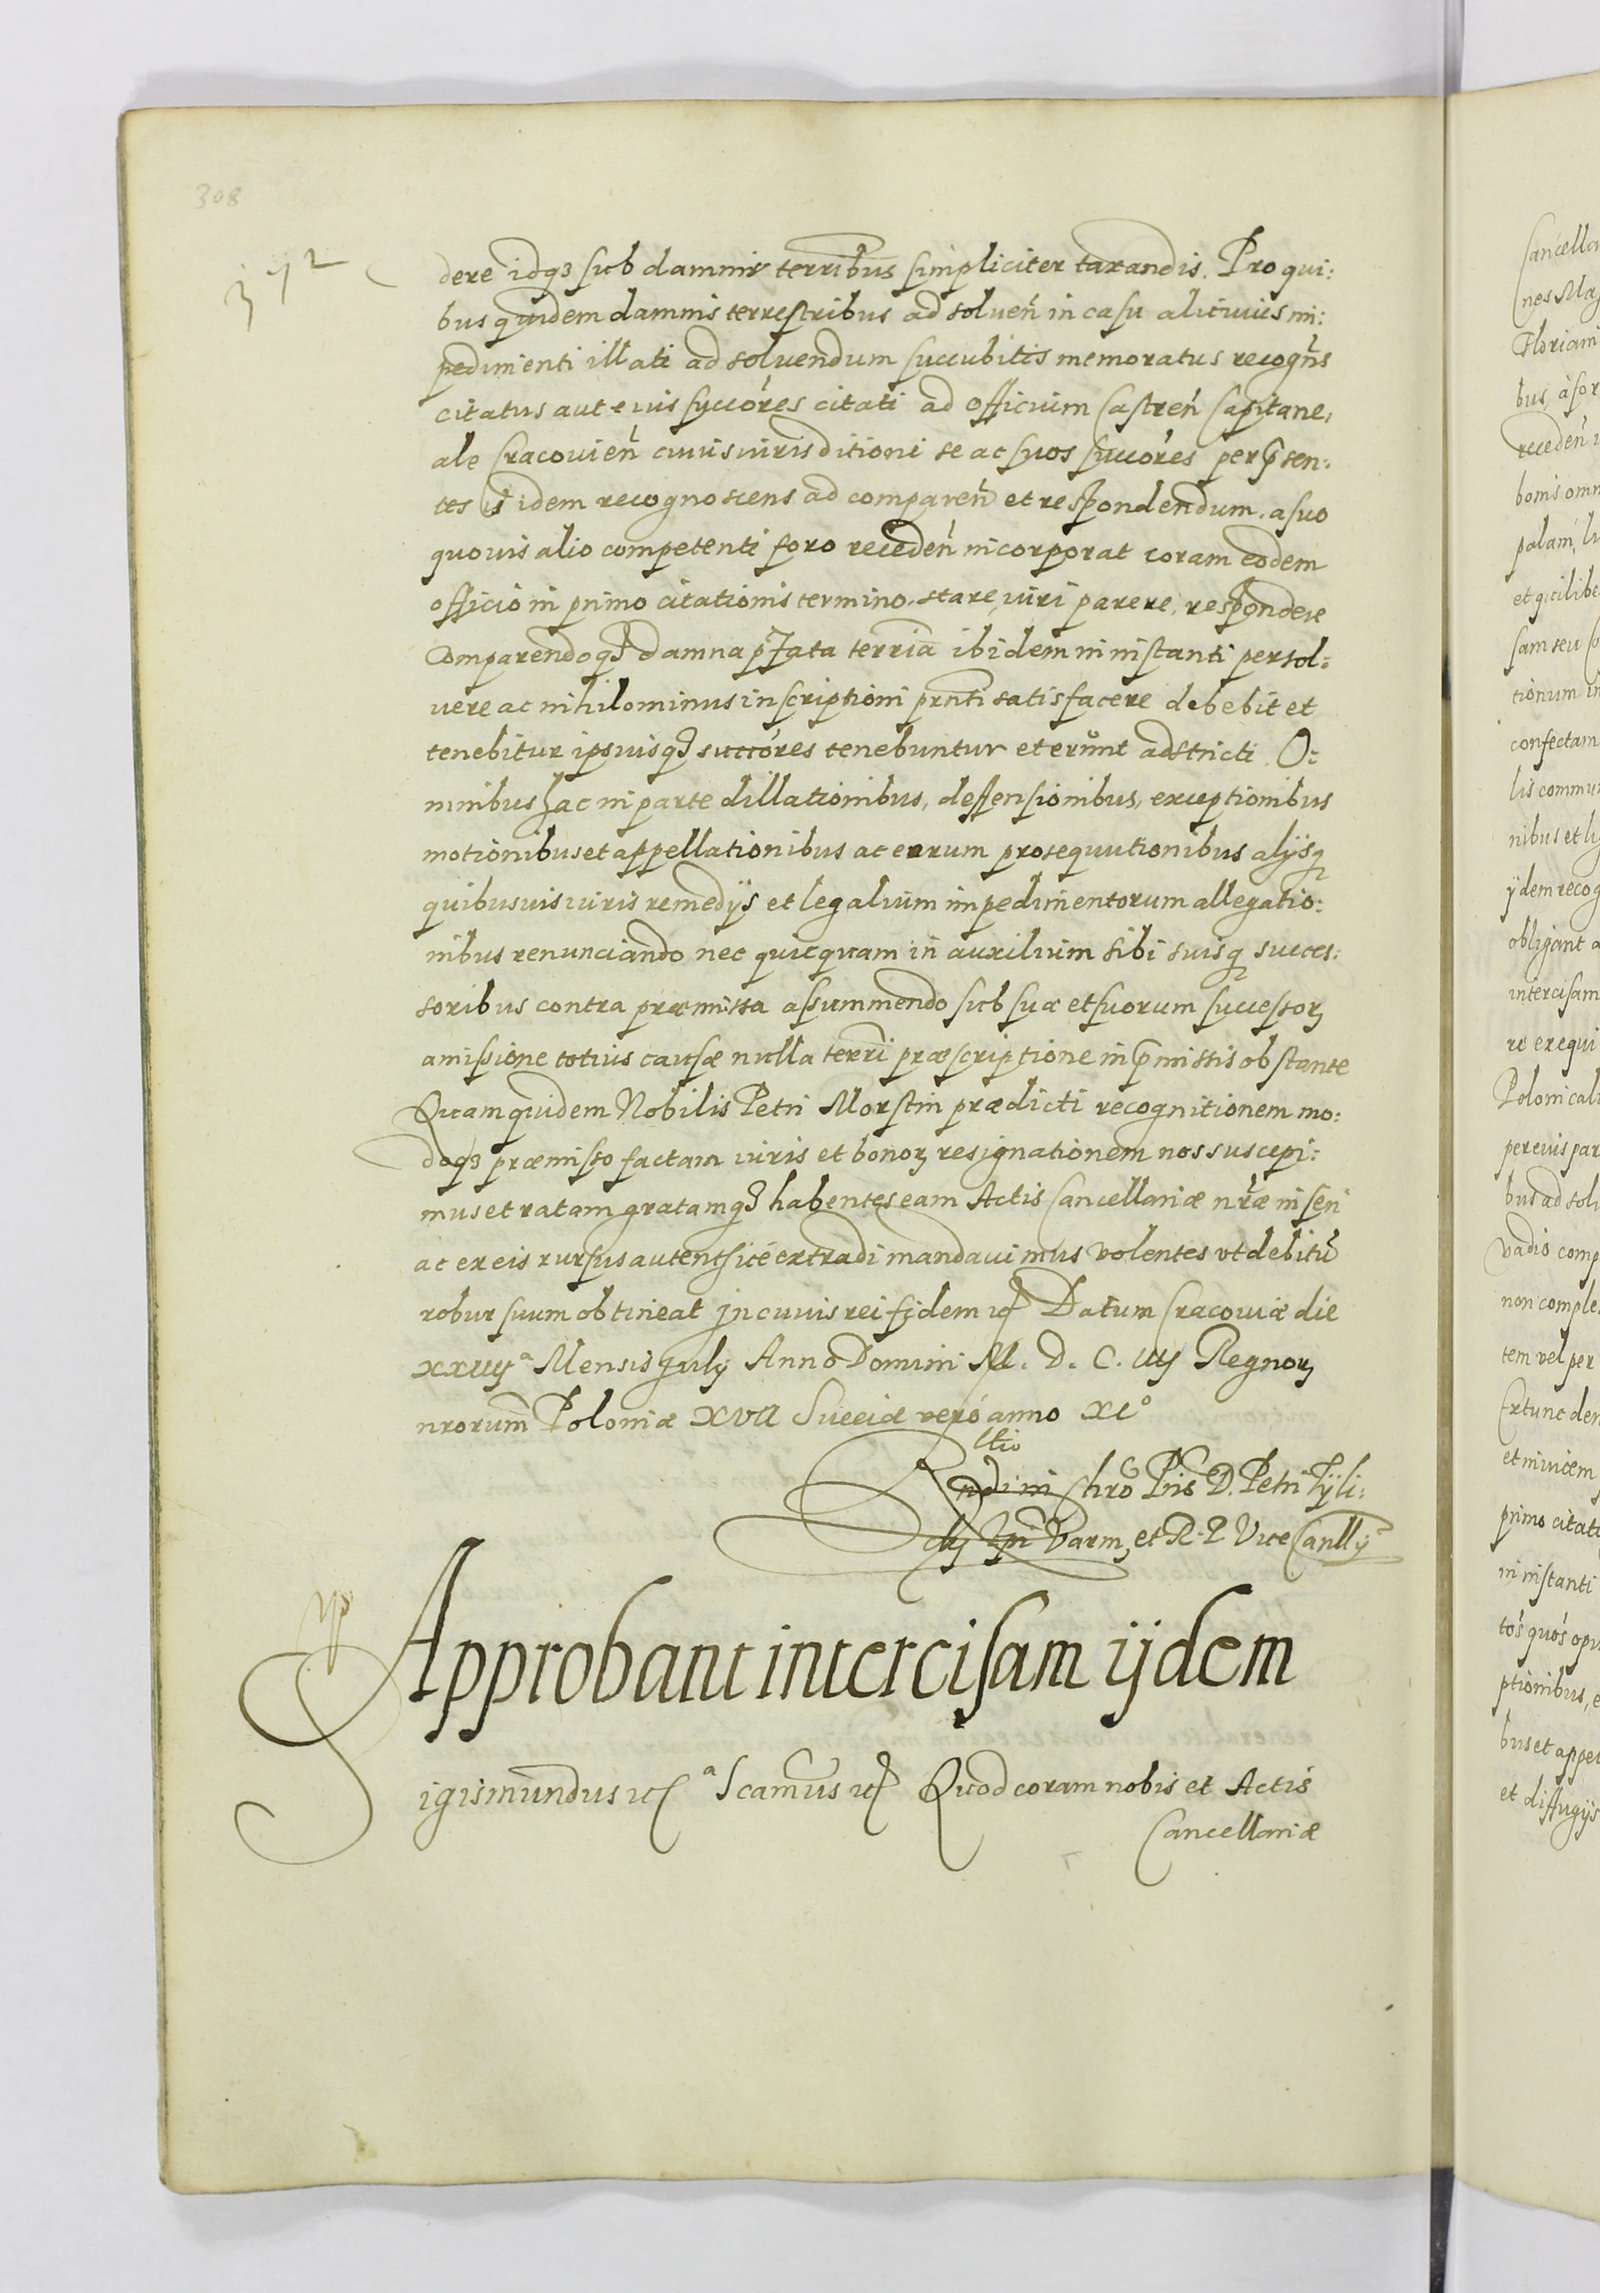 308
372
dere idq3 sub damnis terribus simpliciter taxandis. Pro qui:
bus quidem damnis terrestribus ad soluen̄ in casu alicuius im:
pedimenti illati ad soluendum succubitis memoratus recogn̄s
citatus aut eius succōres citati ad officium Castren̄ Capitane,
ale Cracouien̄ cuius iurisditioni se ac suos succōres per p̄sen:
tes is idem recognoscens ad comparen̄ et respondendum, a suo
quouis alio competenti foro receden̄ incorporat coram eodem
officio in primo citationis termino, stare, iuri parere, respondere
Comparendoq3 damna p̄fata terria ibidem in instanti persol:
uere ac nihilominus inscriptioni prn̄ti satisfacere debebit et
tenebitur ipsiusq3 succōres tenebuntur et erunt adstricti. O:
mnibus hac in parte dillationibus, deffensionibus, exceptionibus
motionibus et appellationibus ac earum prosequutionibus alijsq
quibusuis iuris remedijs et legalium impedimentorum allegatio:
nibus renunciando nec quicquam in auxilium sibi suisq succes:
soribus contra præmissa assummendo sub sua et suorum successor
amissione totius causæ nulla terri præscriptione in p̄missis obstante
Quam quidem Nobilis Petri Morstin prædicti recognitionem mo:
doq3 præmisso factam iuris et bonor resignationem nos suscepi:
mus et ratam gratamq3 habentes eam Actis Cancellariæ nr̄æ inseri
ac ex eis rursus autentice extradi mandauimus volentes vt debitū
robur suum obtineat Jn cuius rei fidem etc Datum Cracouiæ die
xxiiijª Mensis July Anno Domini M. D. C. iiij Regnor
nrorum̄ Poloniæ XVII Sueciæ verò anno XI°
Rltio
ndi in Chrō Pris D. Petri Tyli:
cky Epi Varm, et R. P. Vice Cancllij
Approbant intercisam ijdem
Sigismundus etc ª Scamus etc Quod coram nobis et Actis
Cancellariæ